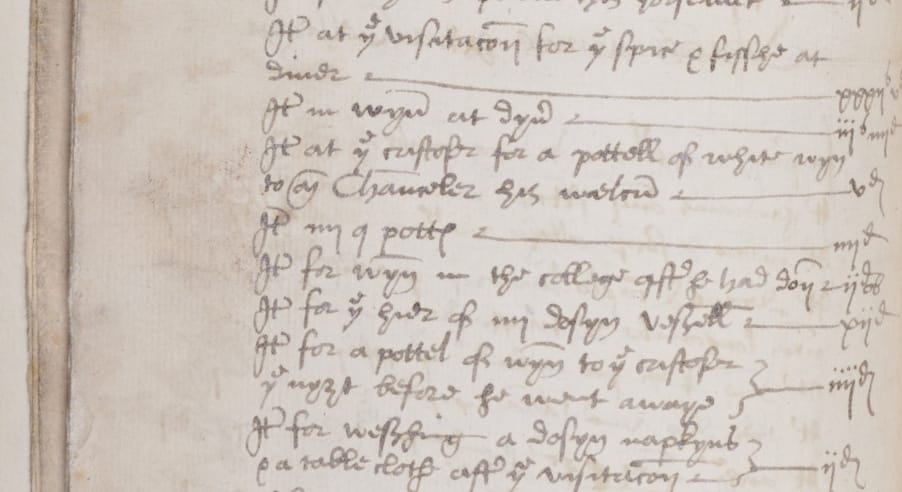 It at yͤ visitacōn for yͤ spice & fisshe at
diner xxxijˢ
It in wyn̄ at dyn̄ iijˢ iiijᵈ
It at yͤ cristofr for a pottell of white wyn
to my Chanceler his welcū vᵈ
It iiij q pottes iiijᵈ
It for wyn̄ in the college aft he had don̄ ijᵈ
It for yͤ hier of iiij dosyn veshell xijᵈ
It for a pottel of wyn̄ to yͤ cristofr
yͤ nyȝt before he went awaye iiijᵈ
It for weshing a dosyn napkyns
& a table cloth aft yͤ visitacōn ijᵈ